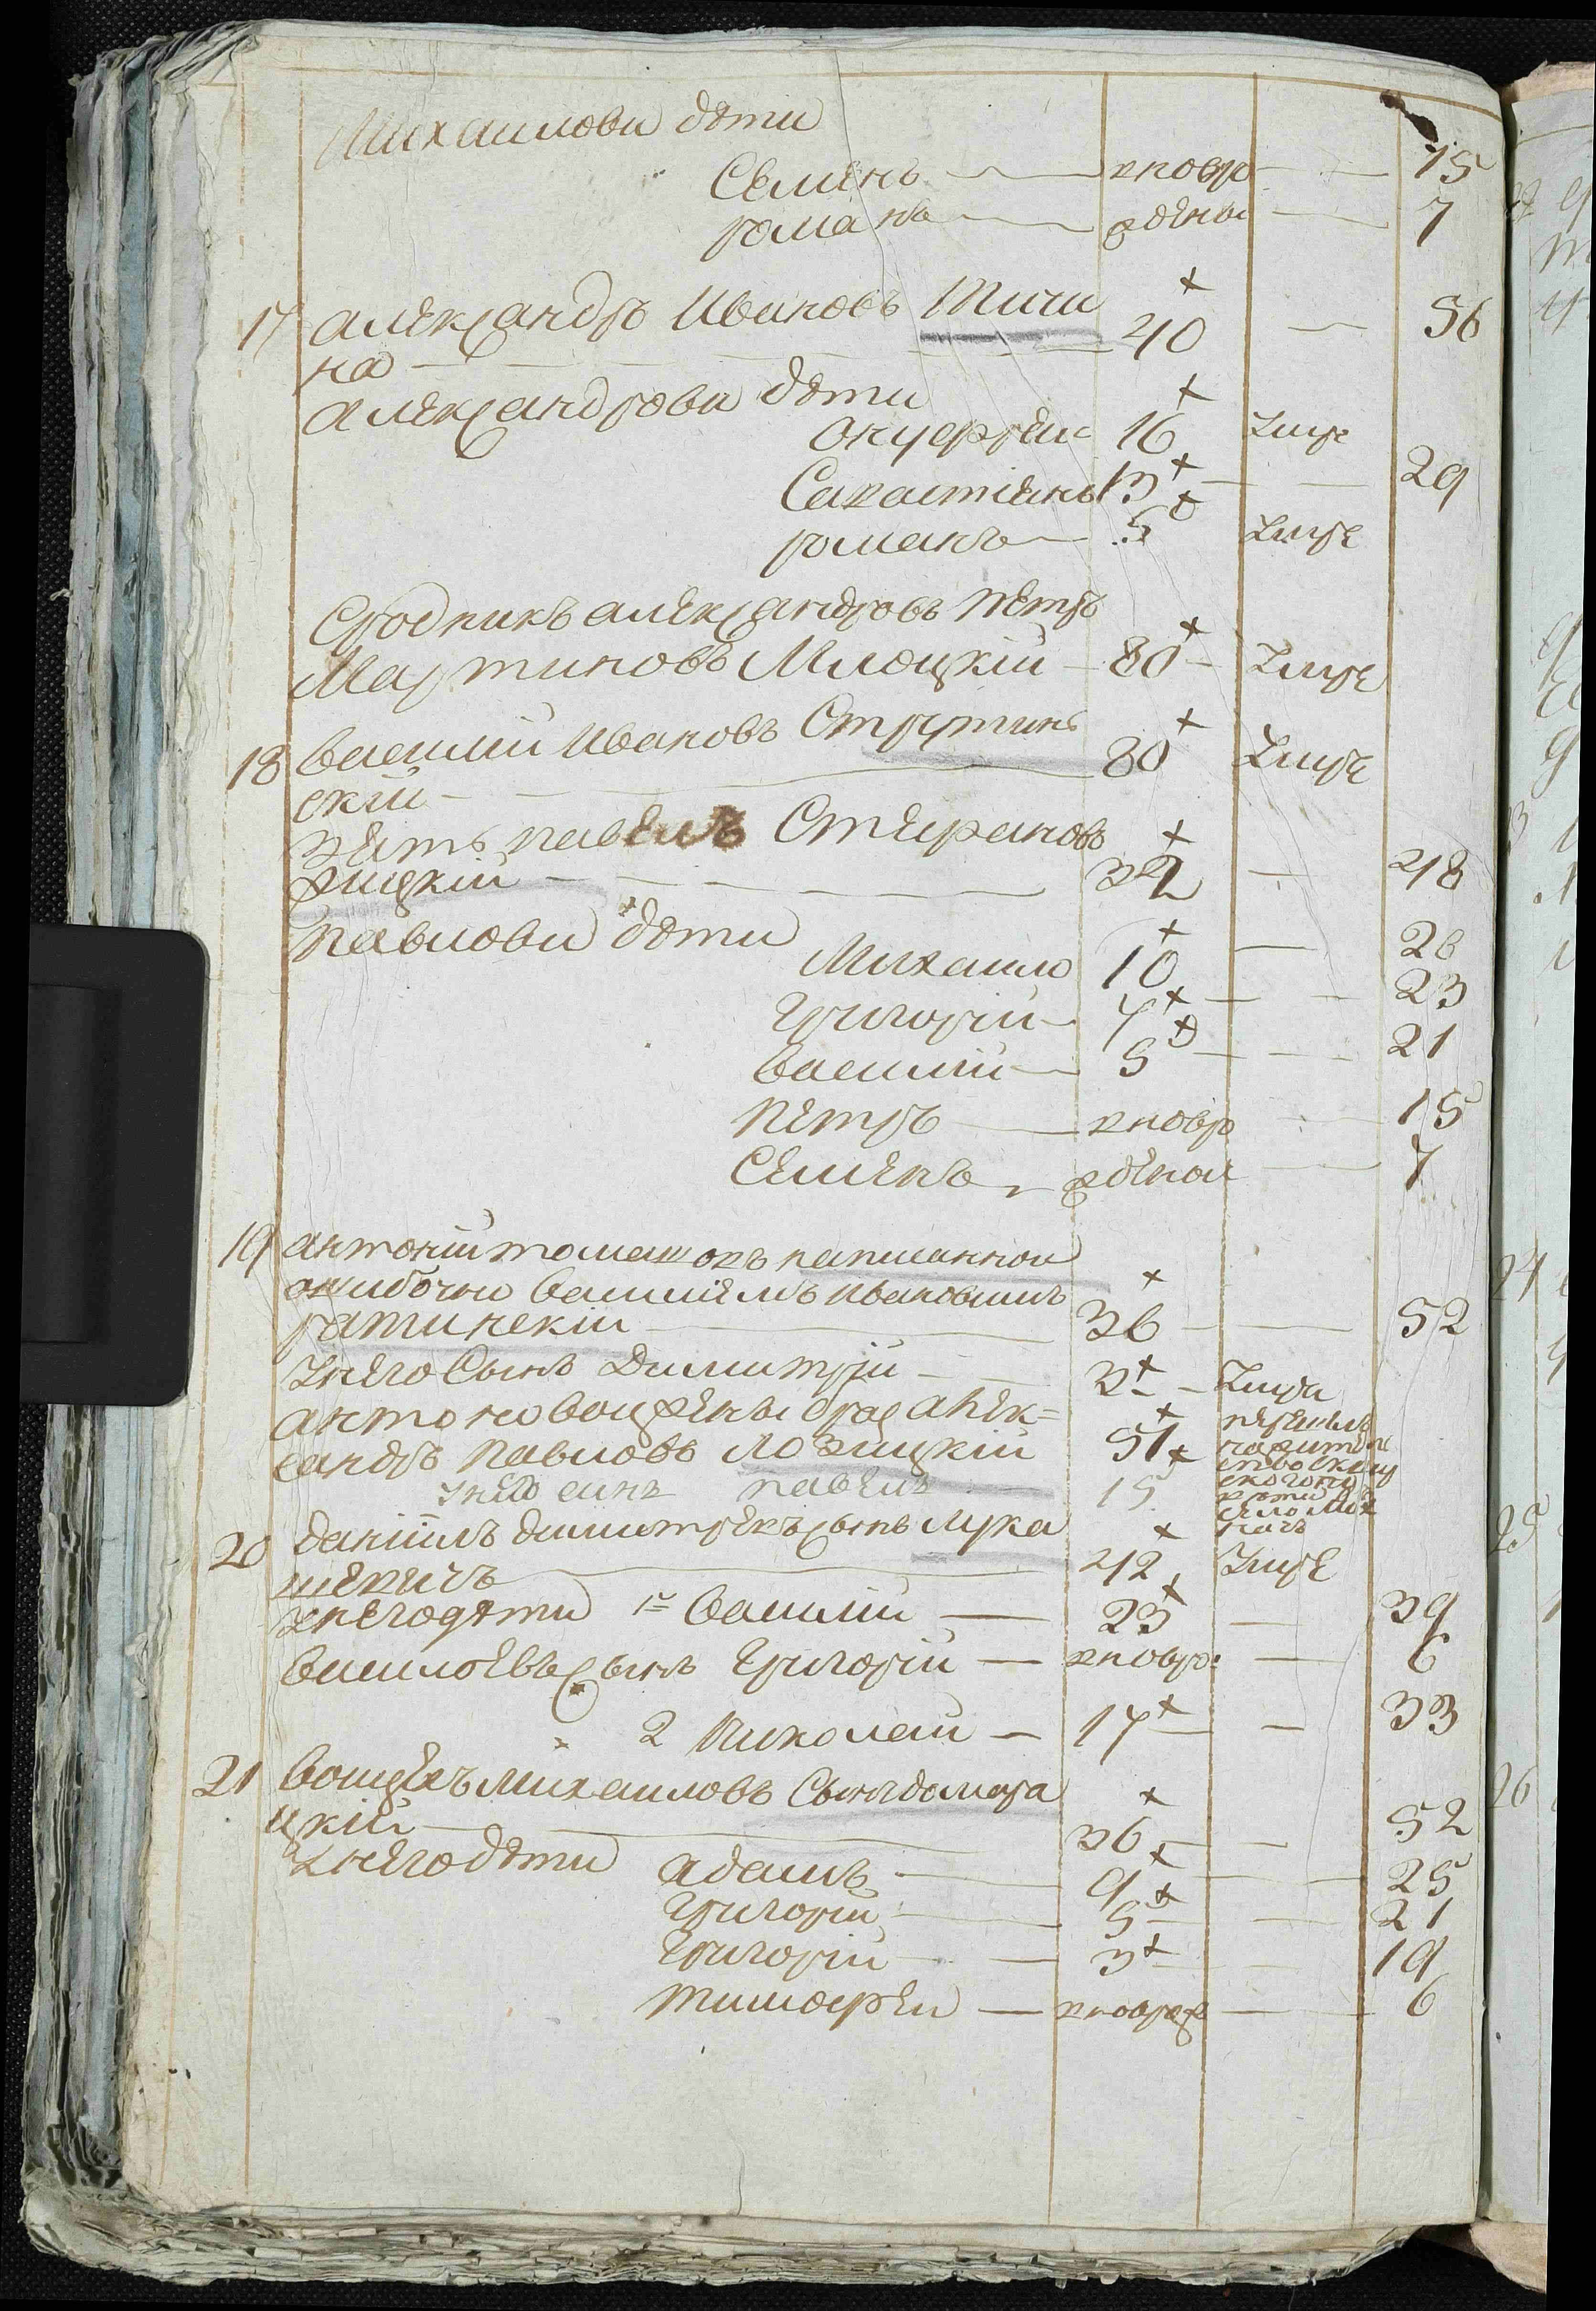 Михаилови дѣти
Семенъ — вновр — 15
романъ — рдены — 7
17 александръ Ивановъ Тичи 40 — 56
на
александрови дѣти
онуфреи 16 Умре
Савастіенъ 13 — 29
романъ — 5 Умре
Сродникъ александровъ петръ
Мартиновъ Млоцкій — 80 — Умре
18 василіи Ивановъ Струтин 80 Умре
скій
зять павелъ Стефановъ
фицкій — 32 — 48
павлови дѣти
Михаило 10 — 26
Григоріи — 7 — 23
василіи — 5 — 21
петръ — вновр — 15
Семенъ — рденои — 7
19 антоніи томашовъ написанной
ошибочно василіемъ Ивановимъ
ратинскіи — 36 — 52
Унего Сынъ Димитріи — 2 — Умре
антонови
сандръ павловъ Лозицкій 51
Унего синъ павелъ 15
20 даніилъ димитревъ сынъ лука 42 Умре
шевичъ
Унего дѣти 1й василіи — 23 — 39
василіевъ сынъ Григоріи — вновр: — 6
2 Николаи — 17 — 33
21 воицехъ михаиловъ Сынъ домара
цкій — 36 — 52
Унего дѣти адамъ — 9 — 25
Григоріи — 5 — 21
Григоріи — 3 — 19
тимофеи — вноврр — 6